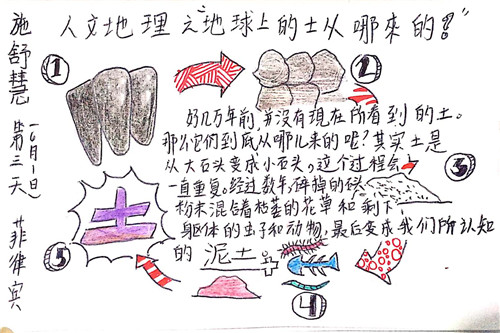 人文地理之"地球上的土从哪來的?"
施舒慧 第三天 菲律宾
6月1日
1
2
好几万年前,并没有現在所看到的土。
那么它们到底从哪儿来的呢?其实土是
从大石头变成小石头。这个过程会
一直重复。经过数年,碎掉的
粉末混合着枯萎的花草和剩下
躯体的虫子和动物,最后变成我们所认知
的 泥土
3
4
5
土